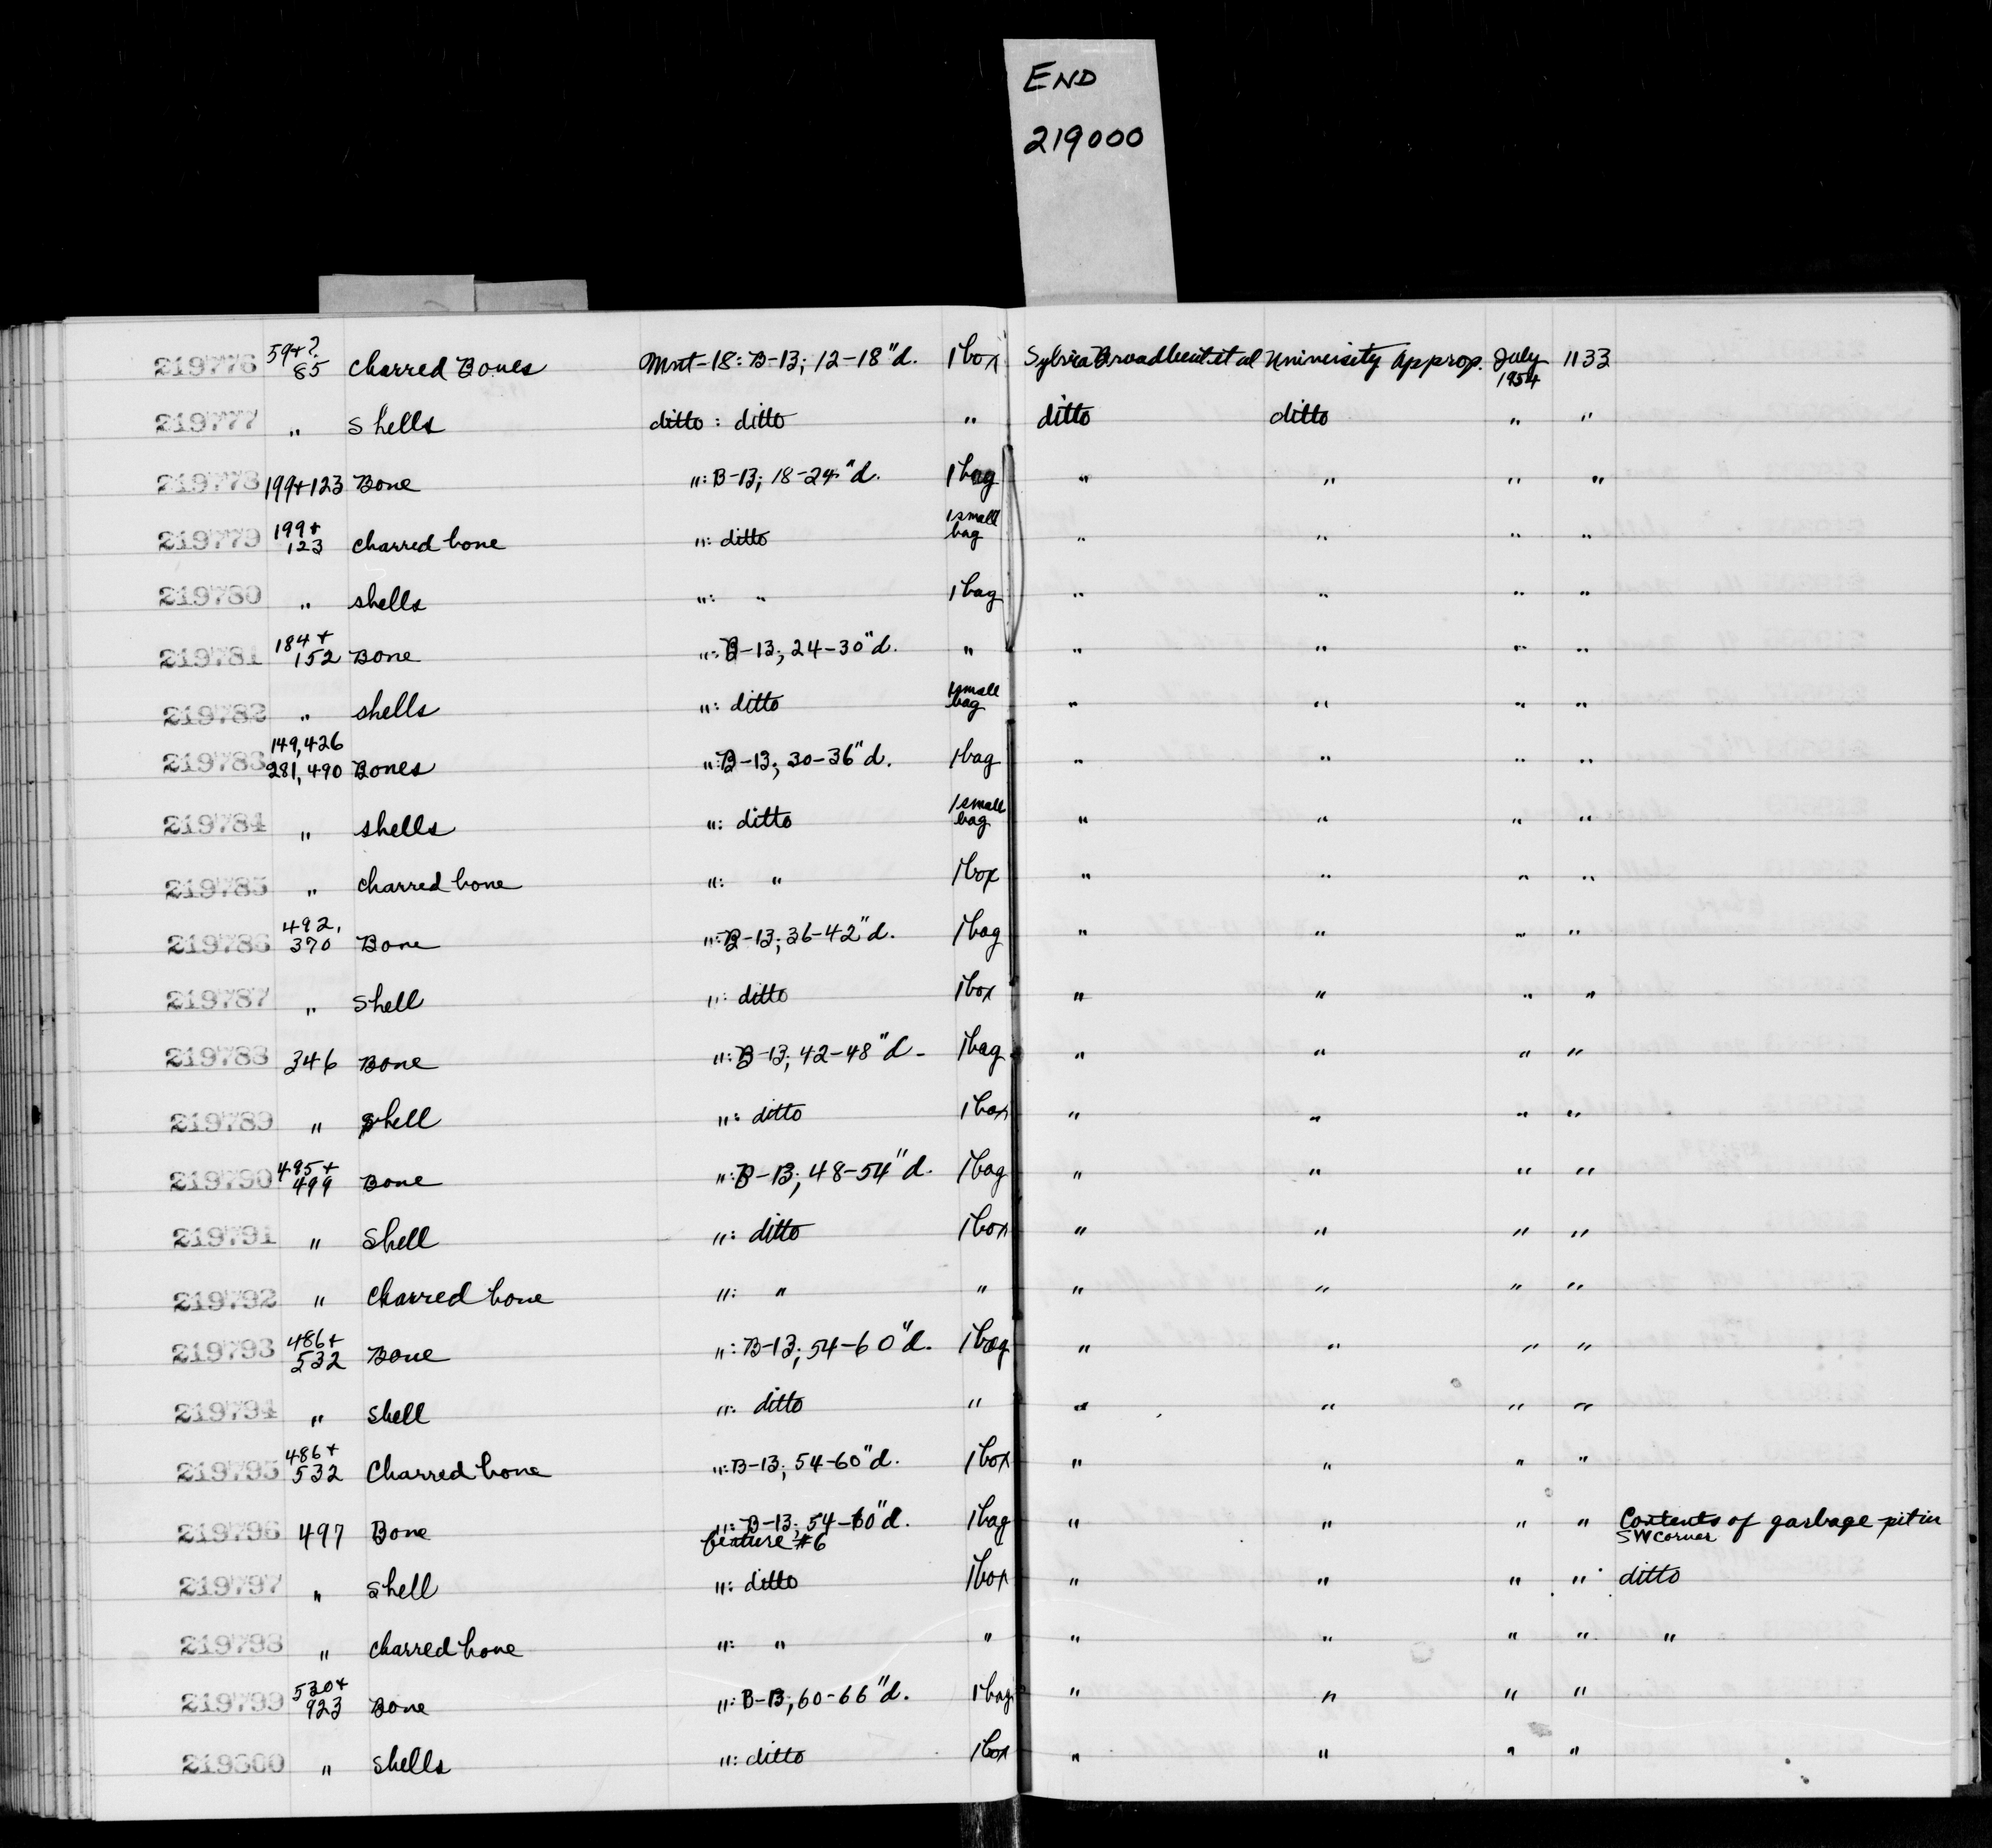 END
219000
219776 59+? 85 Charred Bones Mnt-18: B-13; 12-18"d. 1 box Sylvia Broadbent et al University Approp. July 1954 1133
219777 " Shells ditto : ditto " ditto ditto " "
219778 199+123 Bone ": B-13; 18-24"d. 1 bag " " " "
219779 199+ 123 Charred bone ": ditto 1 small bag " " " "
219780 " shells ": " 1 bag " " " "
219781 184+ 152 Bone ": B-13; 24-30"d. " " " " "
219782 " shells ": ditto 1 small bag " " " "
219783 149,426 281,490 Bones ": B-13; 30-36"d. 1 bag " " " "
219784 " shells ": ditto 1 small bag " " " "
219785 " Charred bone ": " 1 box " " " "
219786 492, 370 Bone ": B-13; 36-42"d. 1 bag " " " "
219787 " Shell ": ditto 1 box " " " "
219788 346 Bone ": B-13; 42-48"d- 1 bag " " " "
219789 " Shell ": ditto 1 box " " " "
219790 495+ 499 Bone ": B-13; 48-54"d. 1 bag " " " "
219791 " Shell ": ditto 1 box " " " "
219792 " Charred bone ": " " " " " "
219793 486+ 532 Bone ": B-13; 54-60"d. 1 bag " " " "
219794 " Shell ": ditto " " " " "
219795 486+ 532 Charred bone ": B-13; 54-60"d. 1 box " " " "
219796 497 Bone ": B-13; 54-60"d. feature #6 1 bag " " " " Contents of garbage pit in SW corner
219797 " Shell ": ditto 1 box " " " " ditto
219798 " Charred bone ": " " " " " " "
219799 530+ 923 Bone ": B-13; 60-66"d. 1 bag " " " "
219800 " Shells ": ditto 1 box " " " "